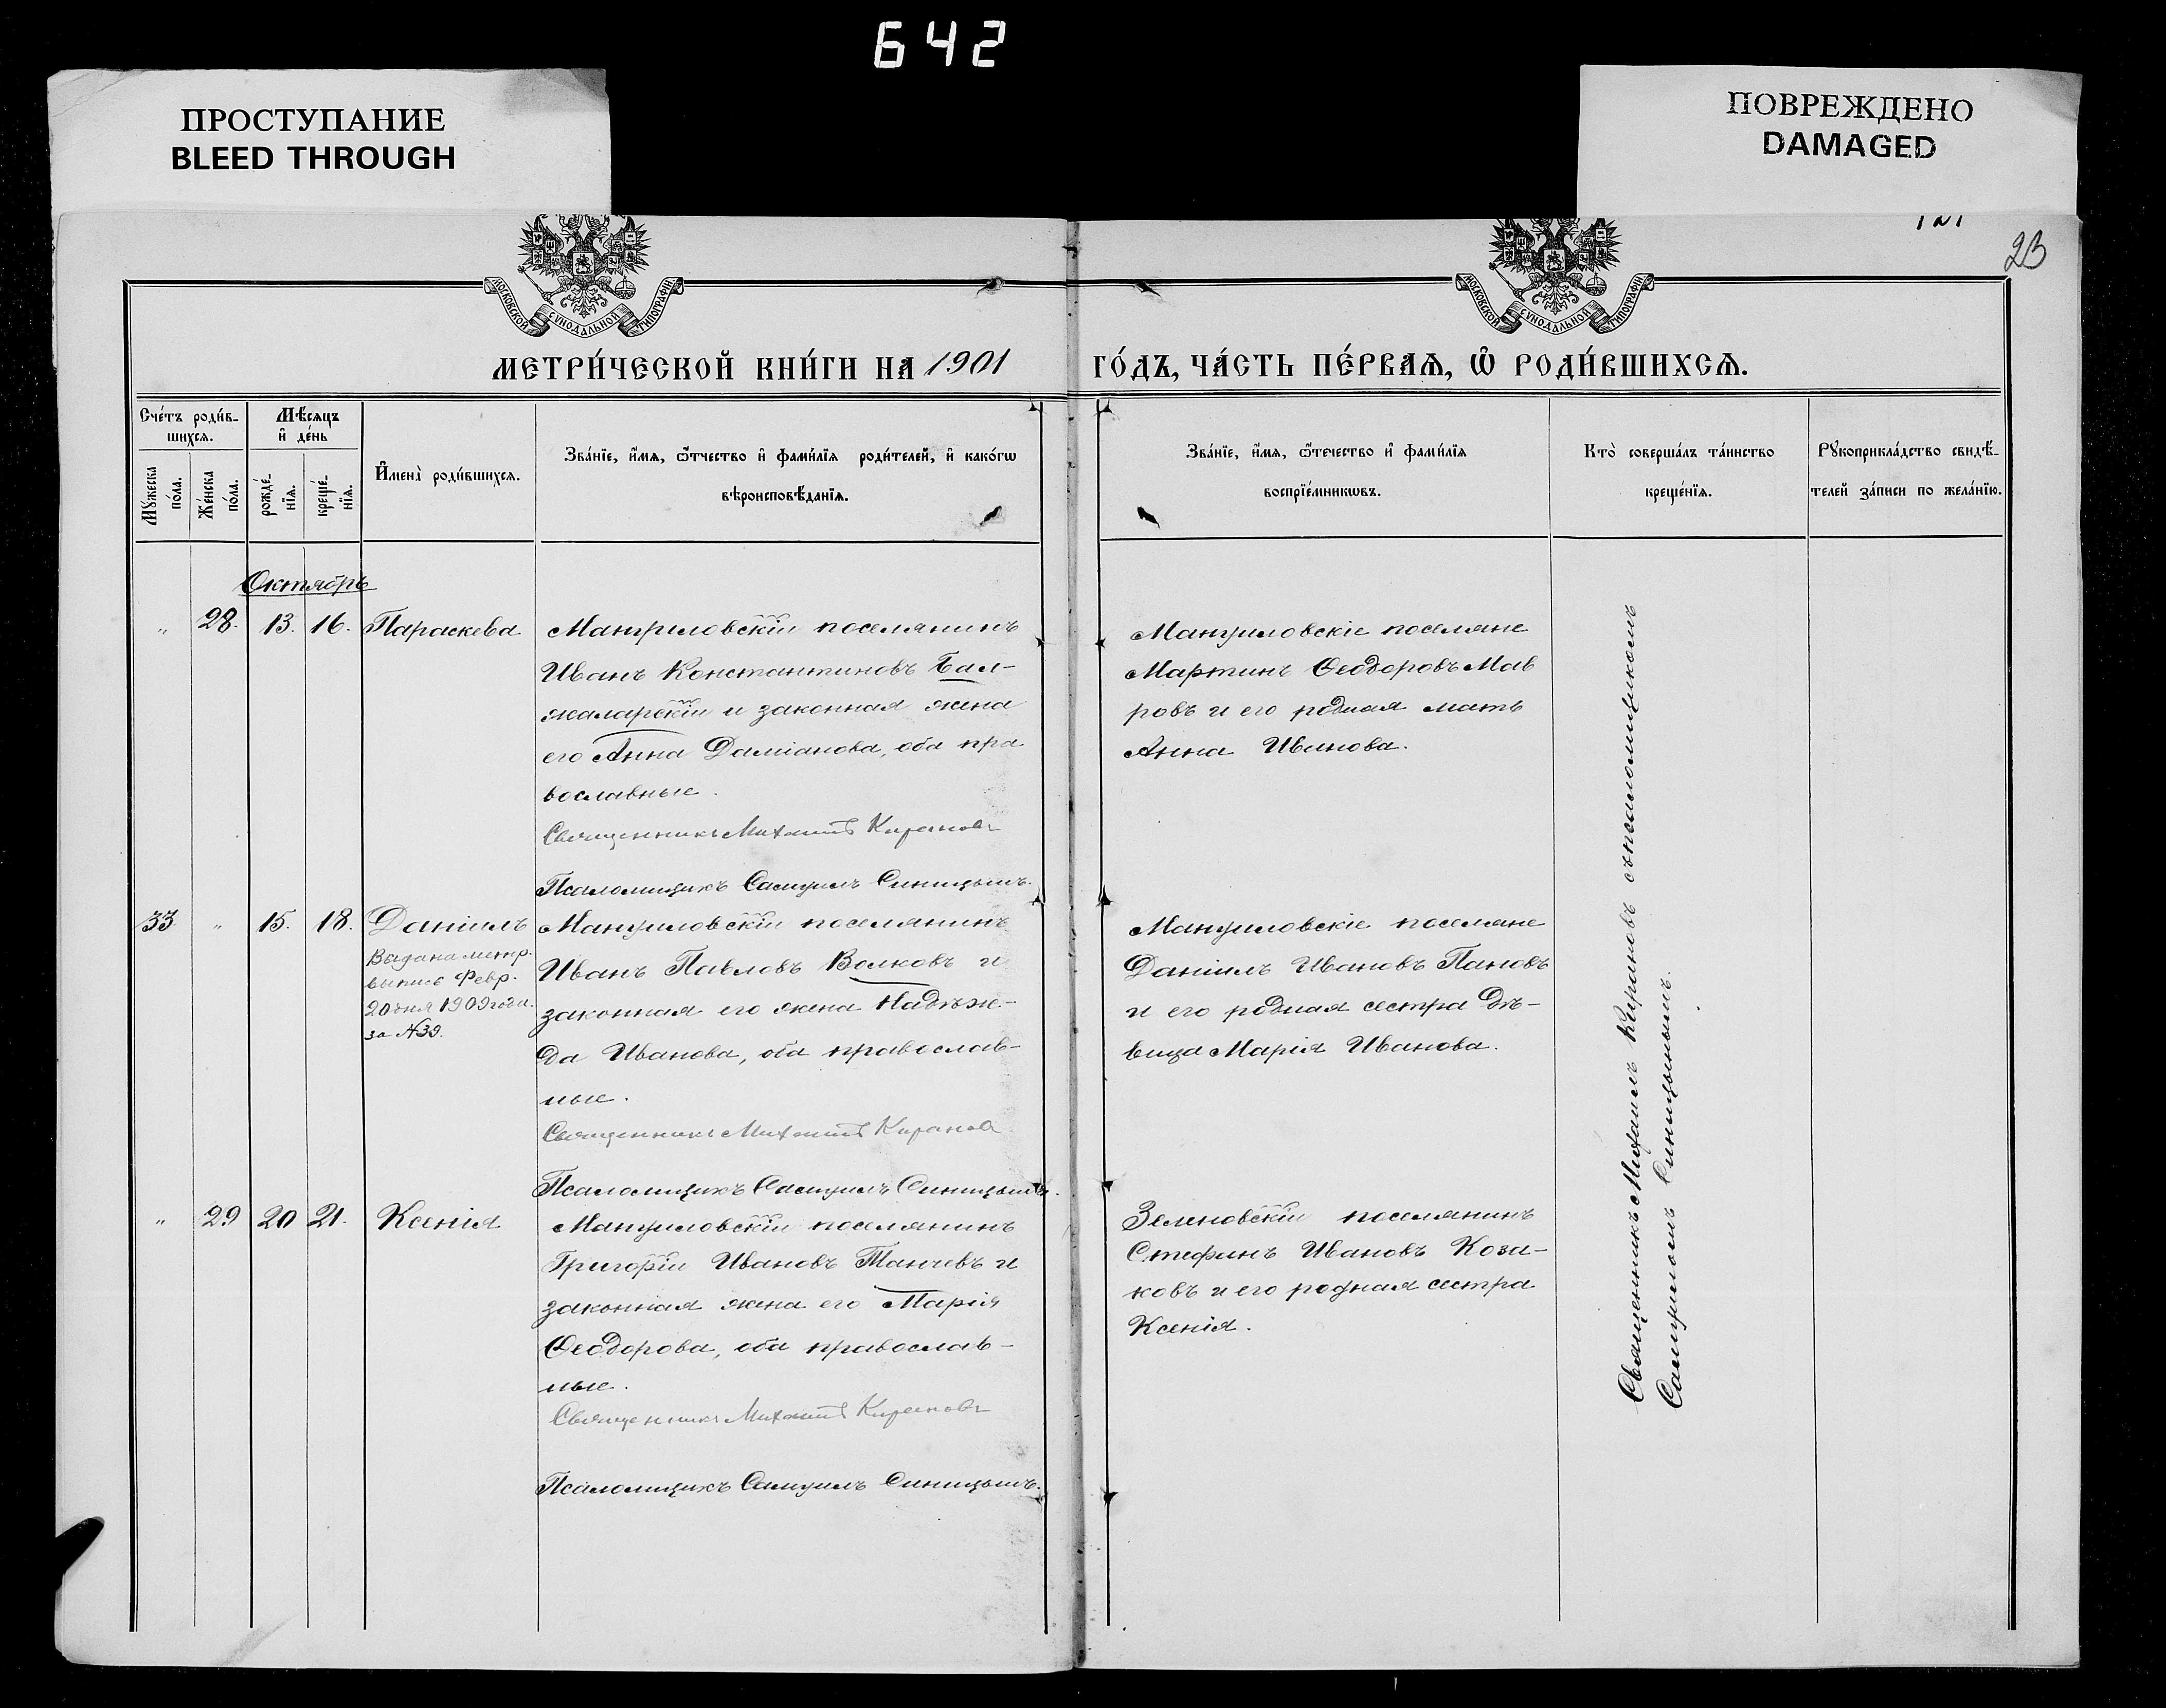 642
ПРОСТУПАНИЕ
BLEED THROUGH
ПОВРЕЖДЕНО
DAMAGED
23
МОСКОВСКОЙ СѴНОДАЛЬНОЙ ТИПОГРАФІИ
МОСКОВСКОЙ СѴНОДАЛЬНОЙ ТИПОГРАФІИ
МЕТРИ́ЧЕСКОЙ КНИ́ГИ НА 1901 ГО́ДЪ, ЧА́СТЬ ПЕ́РВАѦ, Ѡ҆ РОДИ́ВШИХСѦ.
Сче́тъ роди́в-
шихсѧ.
Мѣ́сѧцъ
и҆ де́нь
Мꙋ́жеска
по́ла.
Же́нска
по́ла.
рожде́-
нїѧ.
креще́-
нїѧ.
И҆мена̀ роди́вшихсѧ.
Зва́нїе, и҆́мѧ, ѻ҆́тчество и҆ фами́лїѧ роди́телей, и҆ како́гѡ
вѣроисповѣ́данїѧ.
Зва́нїе, и҆́мѧ, ѻ҆те́чество и҆ фами́лїѧ
воспрїе́мникѡвъ.
Кто̀ соверша́лъ та́инство
креще́нїѧ.
Рꙋкоприкла́дство свидѣ́-
телей за́писи по жела́нїю.
Октябрь
„ 28. 13. 16. Параскева
Мануиловскій поселянинъ
Иванъ Константиновъ Бал-
жаларскій и законная жена
его Анна Даміанова, оба пра
вославные.
Священникъ Михаилъ Кирановъ
Псаломщикъ Самуилъ Синицынъ.
Мануиловскіе поселяне
Мартинъ Ѳеодоровъ Мав
ровъ и его родная мать
Анна Иванова.
33 „ 15. 18. Даніилъ
Выдана метр.
выпись Февр.
20 дня 1909 года
за №39.
Мануиловскій поселянинъ
Иванъ Павловъ Волковъ и
законная его жена Надѣж-
да Иванова, оба православ-
ные.
Священникъ Михаилъ Кирановъ
Псаломщикъ Самуилъ Синицынъ.
Мануиловскіе поселяне
Даніилъ Ивановъ Пановъ
и его родная сестра дѣ-
вица Марія Иванова.
„ 29 20 21. Ксенія
Мануиловскій поселянинъ
Григорій Ивановъ Танчевъ и
законная жена его Марія
Ѳеодорова, оба православ-
ные.
Священникъ Михаилъ Кирановъ
Псаломщикъ Самуилъ Синицынъ.
Зеленовскій поселянинъ
Стефанъ Ивановъ Коза-
ковъ и его родная сестра
Ксенія.
Священникъ Михаилъ Кирановъ съ псаломщикомъ
Самуиломъ Синицынымъ.